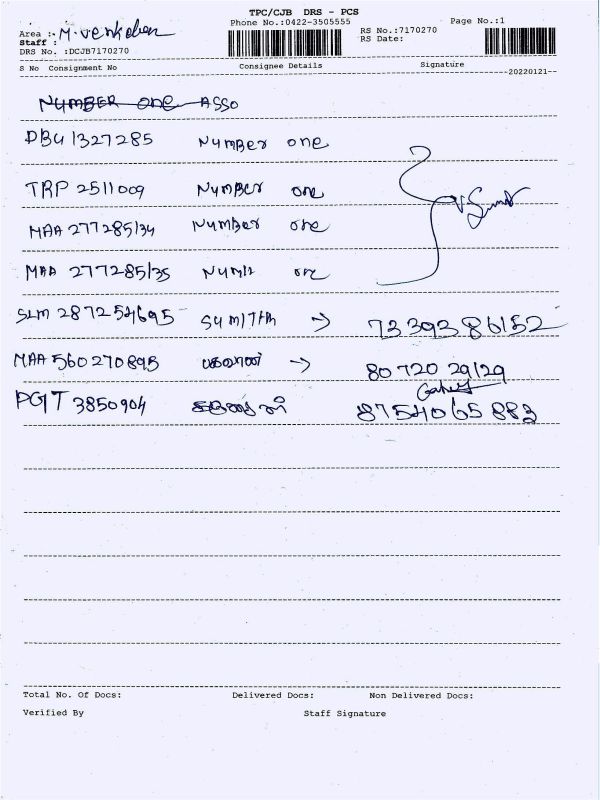 TPC/CJB DRS - PCS
Phone No.:0422-3505555 Page No.:1
Area :- M.venkaben RS No.:7170270
Staff : RS Date:
DRS No. :DCJB7170270
S No Consignment No Consignee Details Signature
--20220121--
NUMBER one ASSO
DBU 1327285 Number one
TRP 2511009 Number one
MAA 277285134 Number one
MAA 277285135 one
SLM 287254695 → 7339386152
MAA 560270895 → 8072029129
PGT 3850904 8754065883
Total No. Of Docs: Delivered Docs: Non Delivered Docs:
Verified By Staff Signature